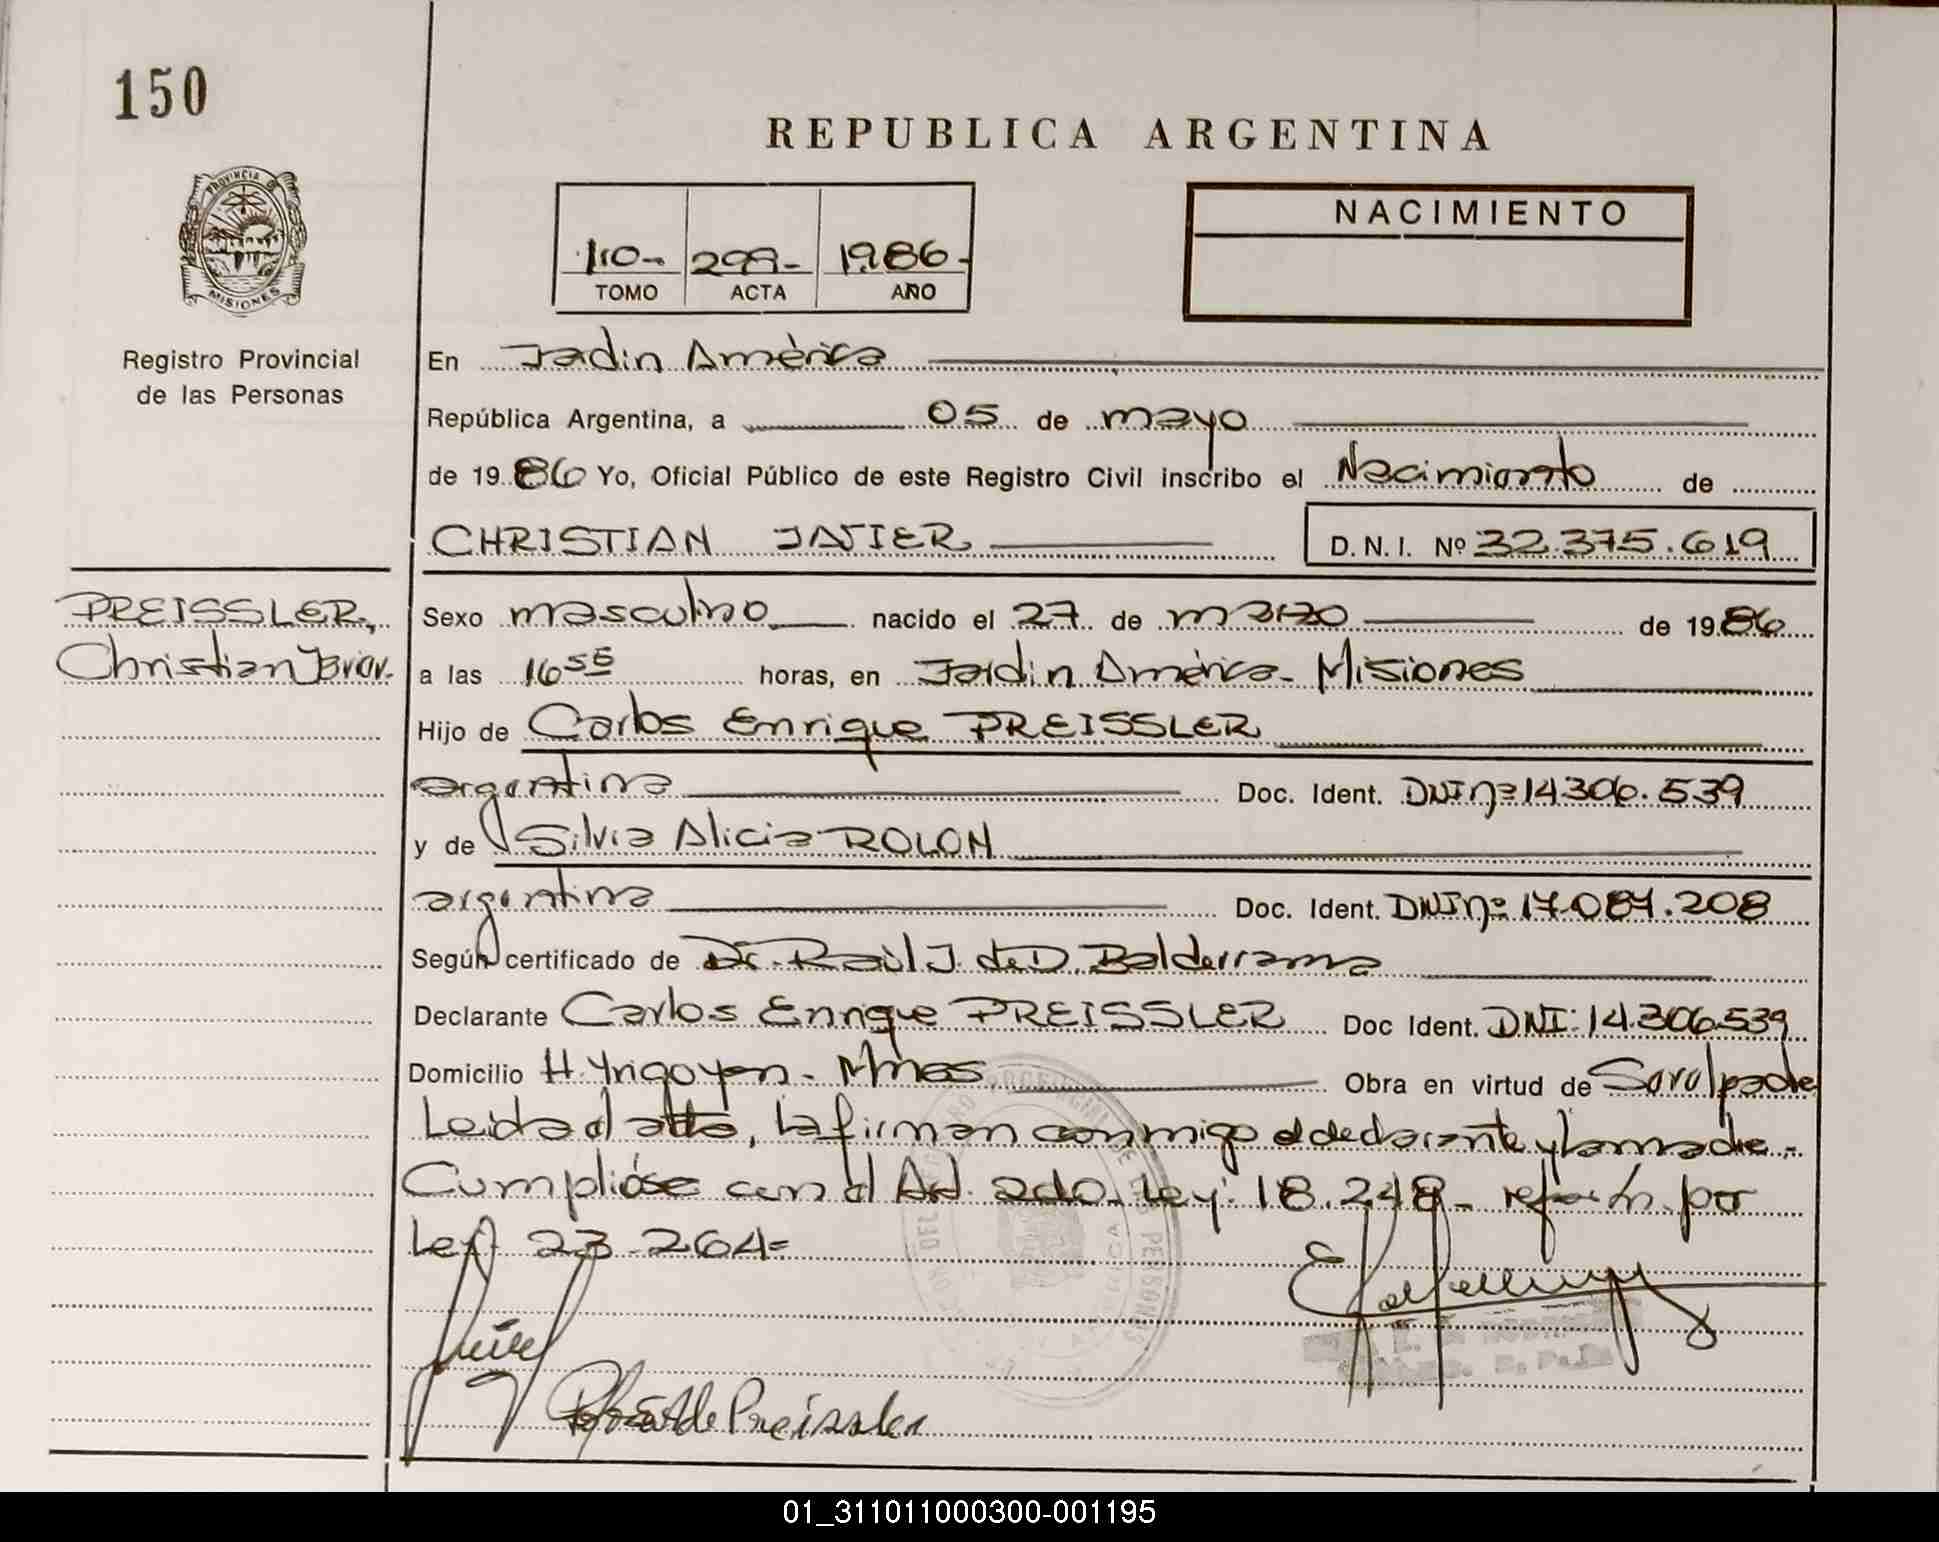 150
REPUBLICA ARGENTINA
PROVINCIA DE
MISIONES
Registro Provincial
de las Personas
110- 299- 1986-
TOMO ACTA AÑO
NACIMIENTO
En Jadin América
República Argentina, a 05 de mayo
de 1986 Yo, Oficial Público de este Registro Civil inscribo el Nacimiento de
CHRISTIAN JAVIER D.N.I. Nº 32.375.619
PREISSLER,
Christian Javier.
Sexo masculino nacido el 27 de marzo de 1986
a las 16 55 horas, en Jardin América- Misiones
Hijo de Carlos Enrique PREISSLER
argentina Doc. Ident. DNI nº 14.306.539
y de Silvia Alicia ROLON
argentina Doc. Ident. DNI nº 17.087.208
Según certificado de Dr. Raúl J. de D. Balderrama
Declarante Carlos Enrique PREISSLER Doc Ident. DNI: 14.306.539
Domicilio H. Yrigoyen- Mnes Obra en virtud de Ser el padre
Leida el acta, la firman conmigo el declarante y la madre.-
Cumplióse con el Art. 2do- Ley 18.248- por
Ley 23.264=
de Preissler
01_311011000300-001195